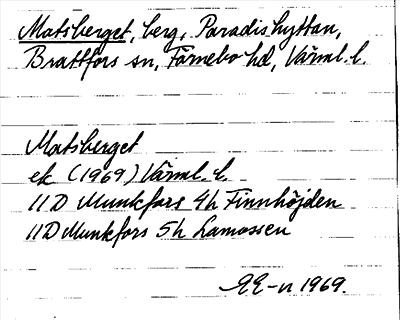 Matsberget, berg, Paradishyttan,
Brattfors sn, Färnebo hd, Värml. l.
Matsberget
ek (1969) Värml. l.
11D Munkfors 4h Finnhöjden
11D Munkfors 5h Lamossen
EE-n 1969.